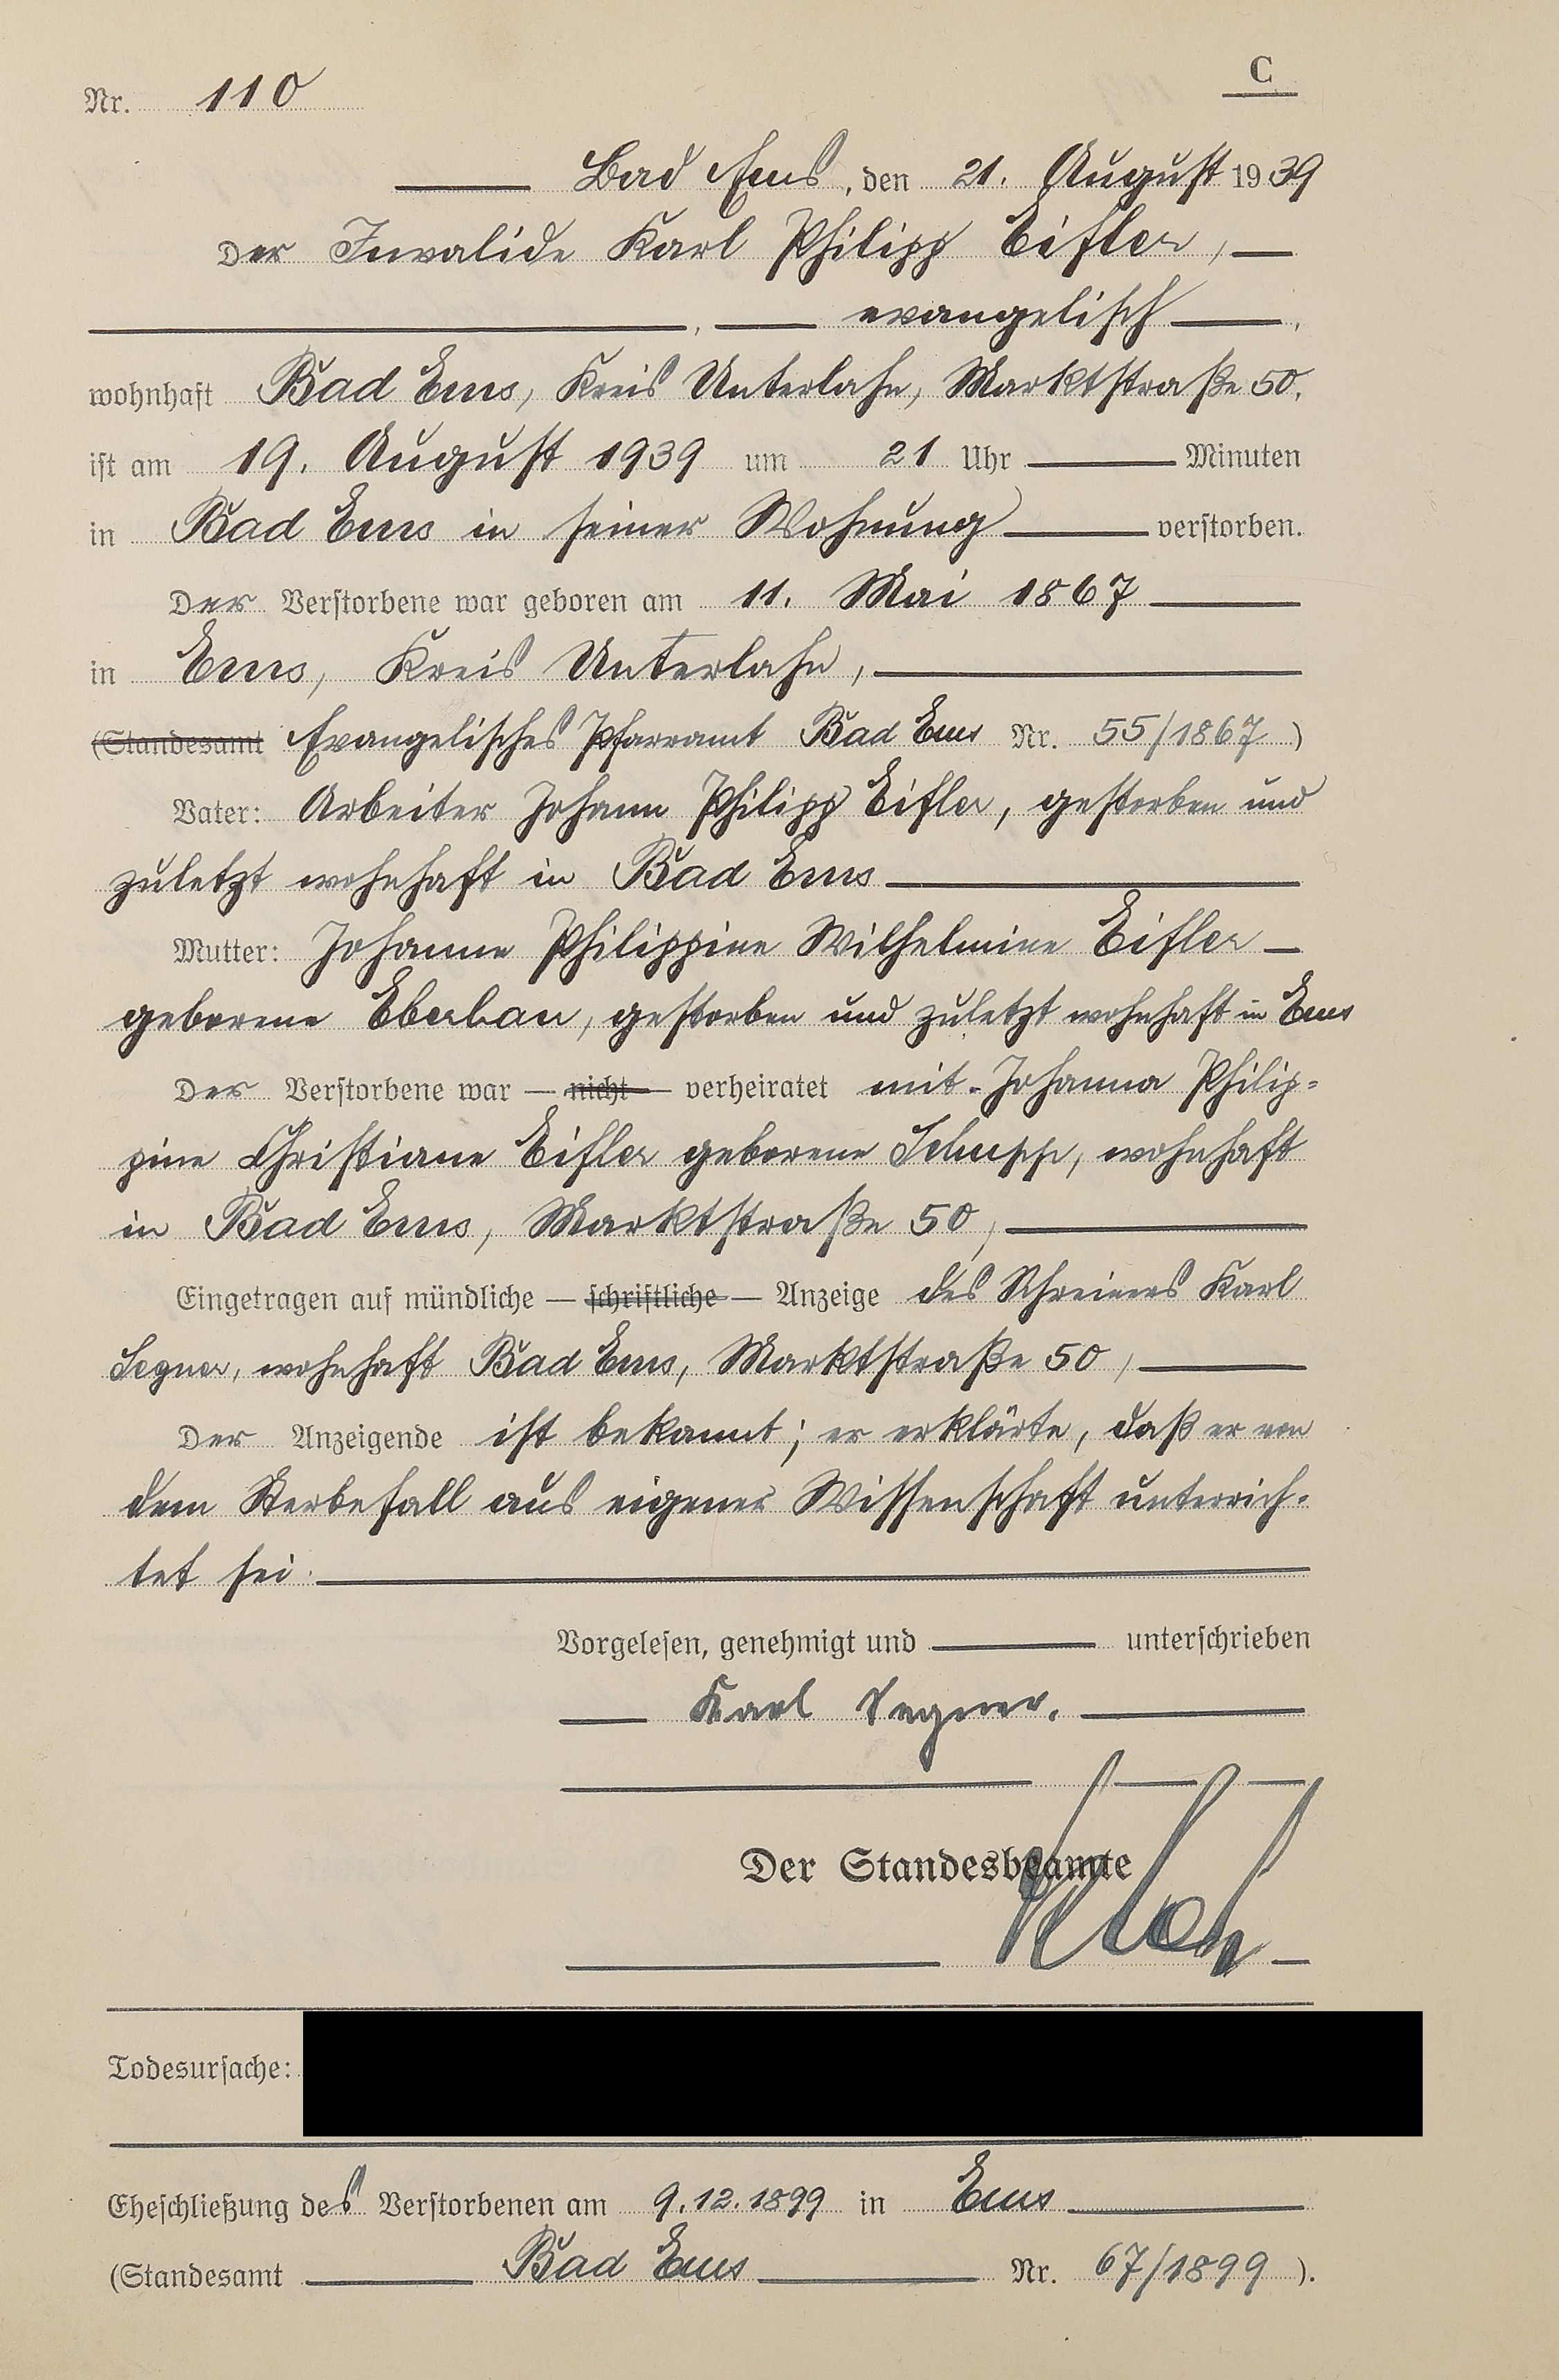 C
Nr. 110
Bad Ems, den 21. August 1939
Der Invalide Karl Philipp Eifler,
, evangelisch,
wohnhaft Bad Ems, Kreis Unterlahn, Marktstraße 50,
ist am 19. August 1939 um 21 Uhr Minuten
in Bad Ems in seiner Wohnung verstorben.
Der Verstorbene war geboren am 11. Mai 1867
in Ems, Kreis Unterlahn,
(Standesamt Evangelisches Pfarramt Bad Ems Nr. 55/1867)
Vater: Arbeiter Johann Philipp Eifler, gestorben und
zuletzt wohnhaft in Bad Ems
Mutter: Johanne Philippine Wilhelmine Eifler
geborene, gestorben und zuletzt wohnhaft in Ems
Der Verstorbene war — nicht — verheiratet mit Johanna Philip=
pine Christiane Eifler geborene Schupp, wohnhaft
in Bad Ems, Marktstraße 50,
Eingetragen auf mündliche — schriftliche — Anzeige des Schreiners Karl
Segner, wohnhaft Bad Ems, Marktstraße 50,
Der Anzeigende ist bekannt; er erklärte, daß er von
dem Sterbefall aus eigener Wissenschaft unterrich=
tet sei.
Vorgelesen, genehmigt und unterschrieben
Karl Segner.
Der Standesbeamte
Todesursache:
Eheschließung des Verstorbenen am 9.12.1899 in Ems
(Standesamt Bad Ems Nr. 67/1899).